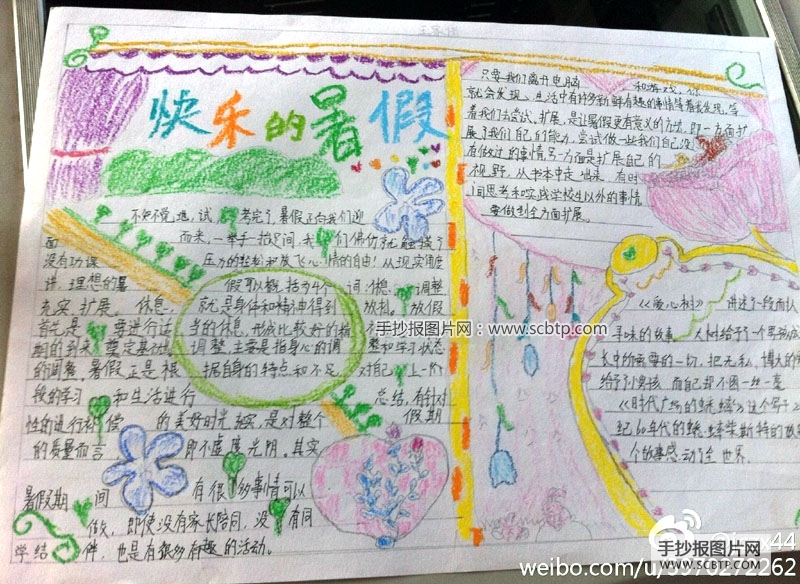 快乐的暑假
不知不觉地，试考完了，暑假正向我们迎
面而来，一举手一抬足间，我们仿佛就触摸了
没有功课压力的轻松和放飞心情的自由！从现实角度
讲，理想的暑假可以概括为4个词：休息、调整
充实、扩展。休息，就是身体和精神得到放松。放假
首先是要进行适当的休息，形成比较好的
期的到来奠定基础。调整，主要是指身心的调整和学习状态
的调整。暑假正是根据自身的特点和不足，对自己上一阶
段的学习和生活进行总结，有针对
性的进行补偿的美好时光。充实，是对整个假期
的质量而言，即不虚度光阴。其实
暑假期间有很多事情可以
做，即使没有家长陪同，没有同
学结伴，也是有很多有趣的活动。
只要我们离开电脑和游戏，你
就会发现，生活中有许多新鲜有趣的事情等着我发现，等
着我们去尝试。扩展，是让暑假更有意义的方式，即一方面扩
展了我们自己的能力，尝试做一些我们自己没
有做过的事情，另一方面是扩展自己的
视野，从书本中走出来，有时
间思考和实践学校生以外的事情
要做到全方面扩展。
《爱心树》讲述了一段而人
寻味的故事，大树给了一个男孩成
长中所需要的一切，把无私、博大的
给了小男孩，而自己却不图一丝一毫
《时代广场的蟋蟀》这个写于
纪60年代的蟋蟀柴斯特的故
个故事感动了全世界．
手抄报图片网：www.scbtp.com
手抄报图片网
WWW.SCBTP.COM
44
weibo.com/u/5970272262